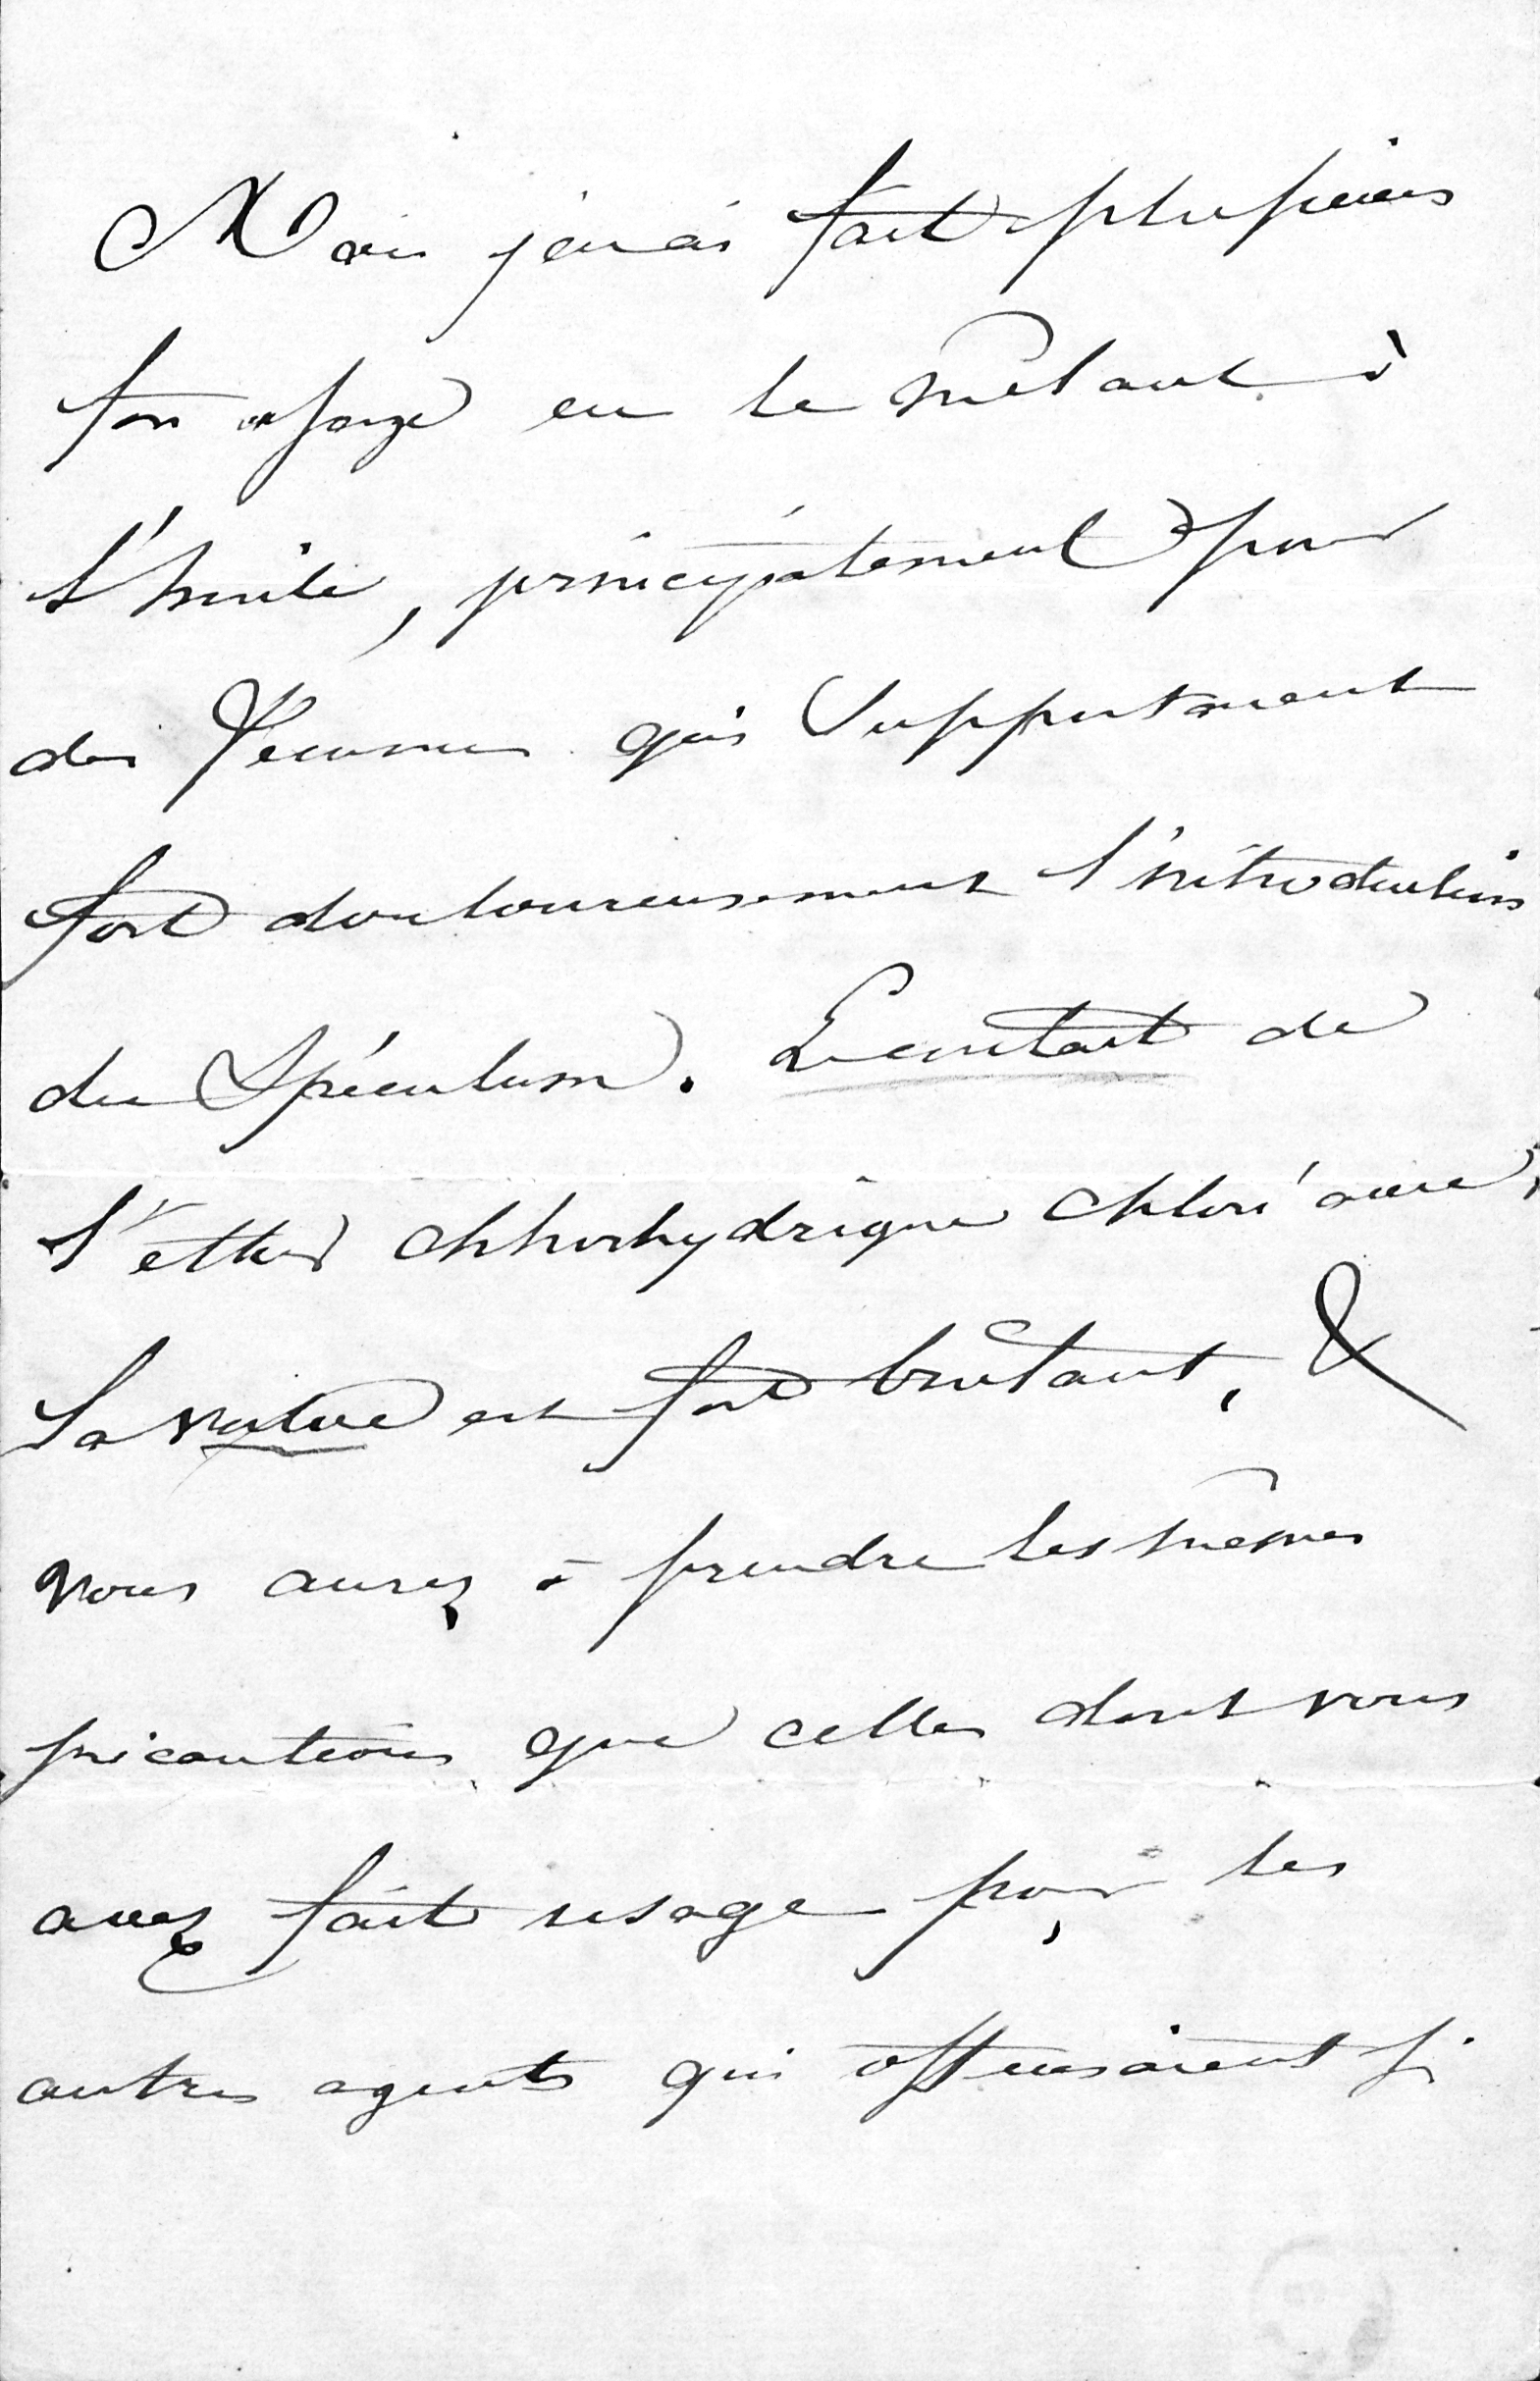 Mais j'en ai fait plusieurs
fois usage en le mêlant à
l'huile, principalement pour
des femmes qui supportaient
fort douloureusement l'introduction
du Spéculum. Le contact de
l'ether chlorhydrique chloré avec
la vulve est fort brûlant, &
vous aurez à prendre les mêmes
précautions que celles dont vous
avez fait usage pour les
autres agents qui offensaient si